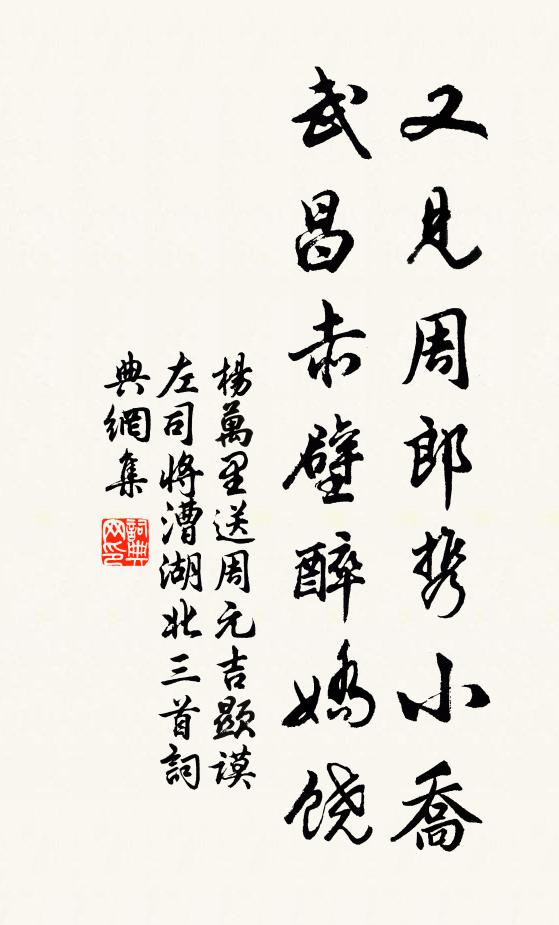 又见周郎携小乔
武昌赤壁醉娇饶
楊萬里送周元吉顯謨
左司將漕湖北三首詞
典網集
詞典
网印